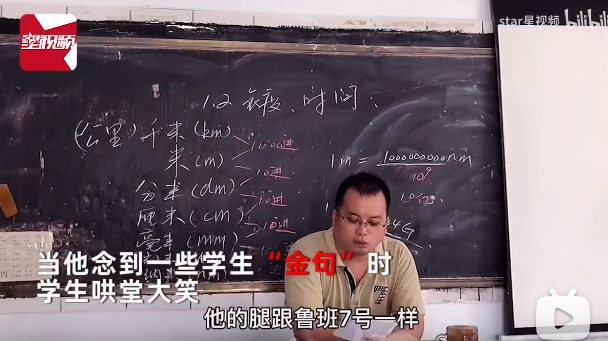 star星视频 bilibili
星视频
1.2 长度、时间:
(公里) 千米 (km)
1000进
米 (m)
1m = 1000000000nm
10进
10⁹
分米 (dm)
10进
10亿
厘米 (cm)
10进
毫米 (mm)
当他念到一些学生“金句”时
学生哄堂大笑
他的腿跟鲁班7号一样